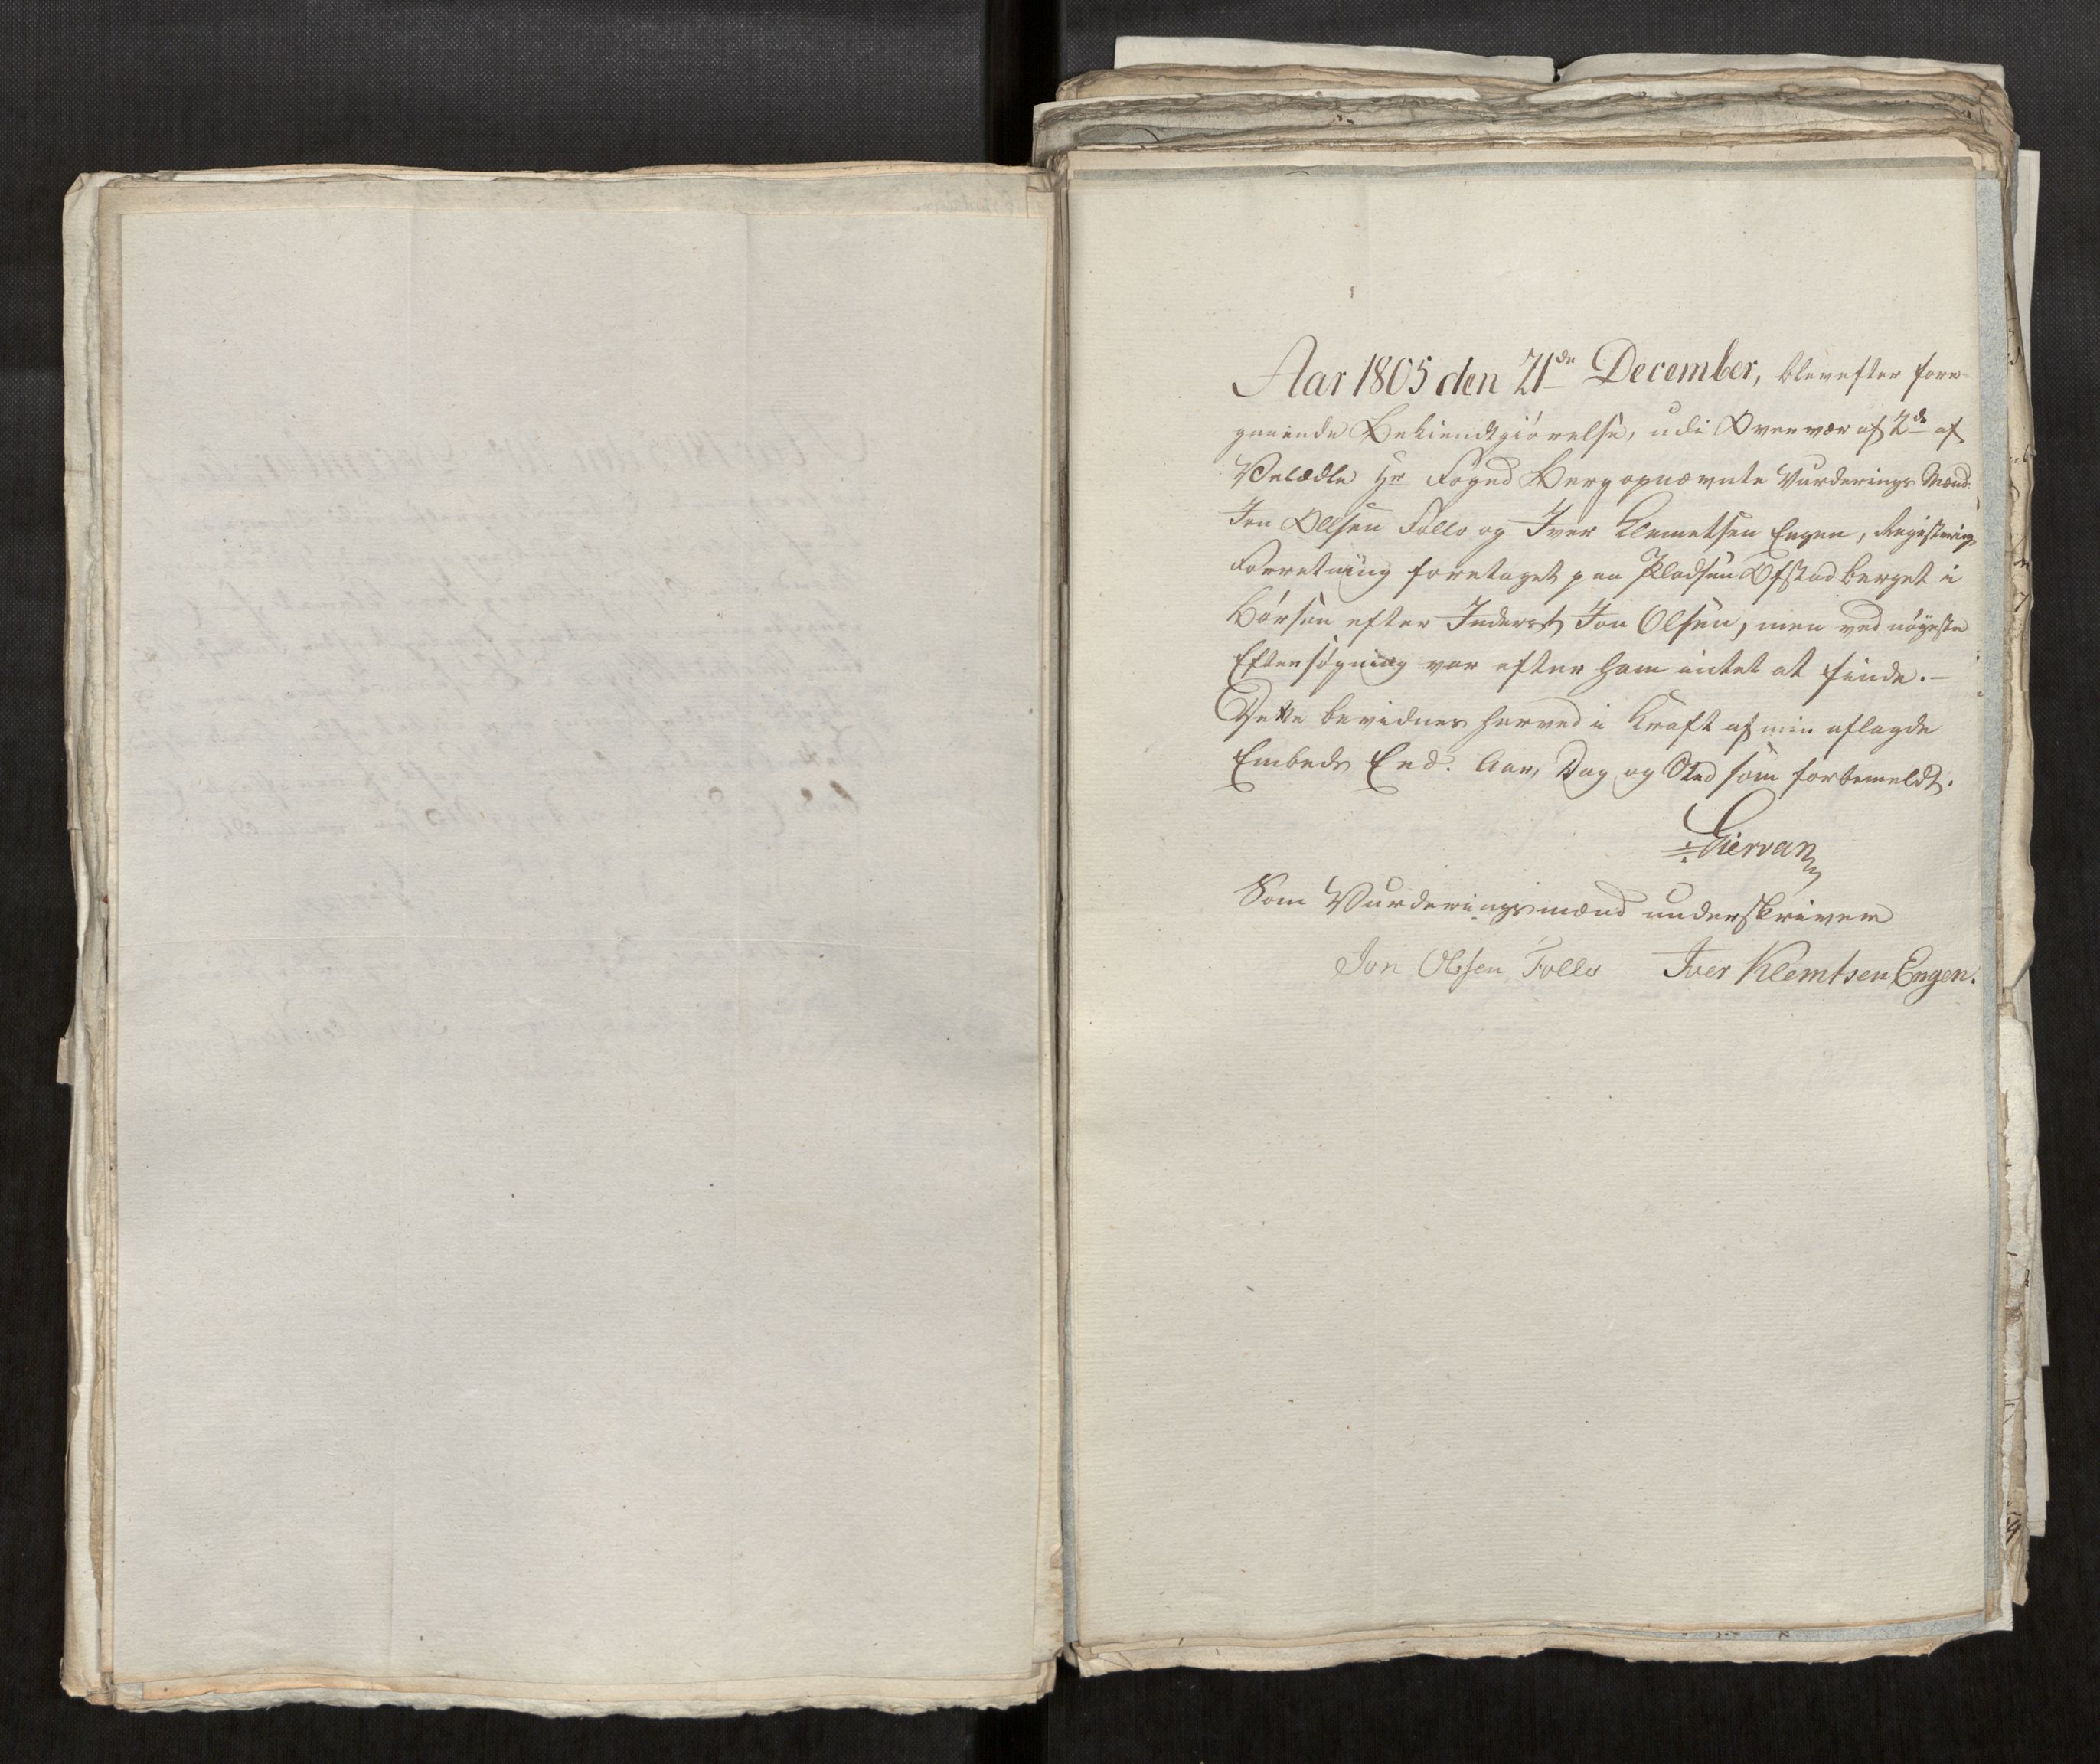 Aar 1805 den 21de December, blev efter fore-
gaaende Bekiendtgiørelse, udi Overvær af 2de af
Velædle Hr Foged Berg opnævnte Vurderings Mænd.
Jon Ollsen Follo og Iver Klemetsen Engen, Registerings
Forretning foretaget paa Pladsen Ofstad berget i
Børsen efter Inderst Jon Olsen, men ved nøyeste
Eftersøgning var efter ham intet at finde. –
Dette bevidnes herved i Kraft af min aflagde
Embeds Eed. Aar, Dag og Sted som forbemeldt.
Giervan
Som Vurderingsmænd underskriver
Jon Olsen Follo Iver Klemtsen Engen.